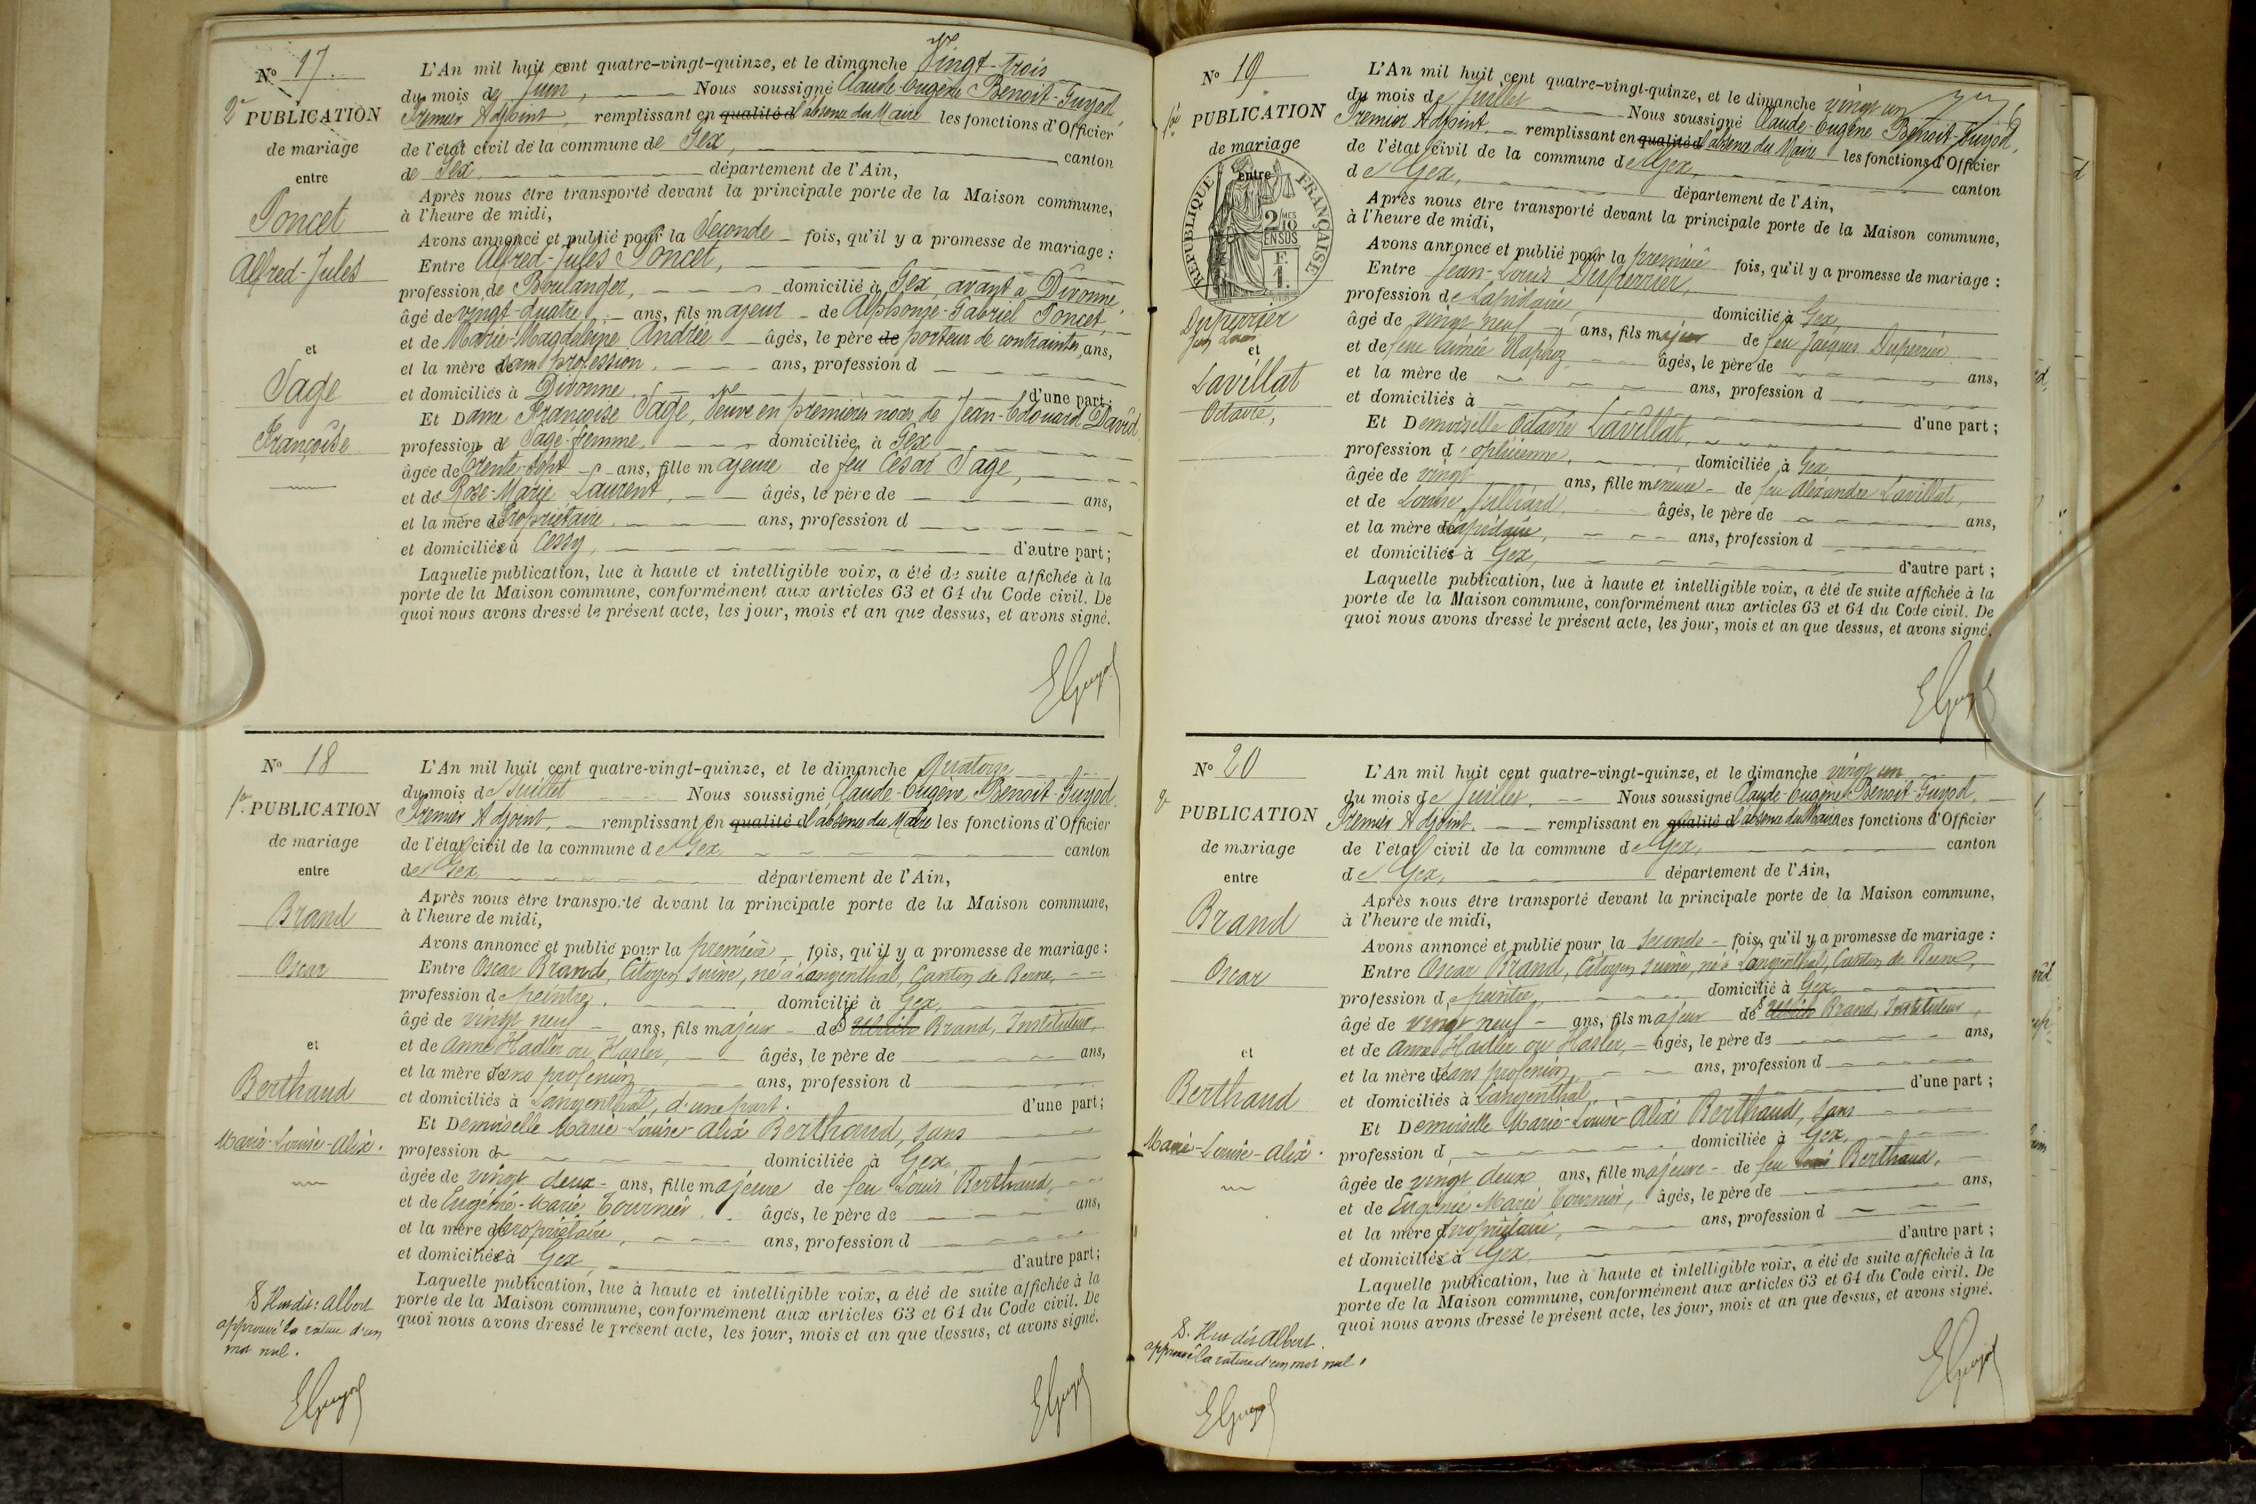 N° 17.
2e PUBLICATION
de mariage
entre
Poncet
Alfred-Jules
et
Sage
Françoise
L'An mil huit cent quatre-vingt-quinze, et le dimanche Vingt-trois
du mois de Juin, Nous soussigné Claude-Eugène Benoit-Guyod,
Premier Adjoint, remplissant en qualité d l'absence du Maire les fonctions d'Officier
de l'état civil de la commune de Gex, canton
de Gex, département de l'Ain,
Après nous être transporté devant la principale porte de la Maison commune,
à l'heure de midi,
Avons annoncé et publié pour la Seconde fois, qu'il y a promesse de mariage :
Entre Alfred-Jules Poncet,
profession de Boulanger, domicilié à Gex, avant à Divonne
âgé de vingt-quatre ans, fils majeur de Alphonse-Gabriel Poncet,
et de Marie-Magdeleine Andrée âgés, le père de porteur de contraintes, ans,
et la mère sans profession, ans, profession d
et domiciliés à Divonne d'une part;
Et Dame Françoise Sage, Veuve en premières noces de Jean-Edouard David
profession de Sage-femme, domiciliée à Gex
âgée de trente-sept ans, fille majeure de feu César Sage,
et de Rose-Marie Laurent, âgés, le père de ans,
et la mère de Propriétaire, ans, profession d
et domiciliés à Cessy, d'autre part;
Laquelle publication, lue à haute et intelligible voix, a été de suite affichée à la
porte de la Maison commune, conformément aux articles 63 et 64 du Code civil. De
quoi nous avons dressé le présent acte, les jour, mois et an que dessus, et avons signé.
EGuyod
N° 18
1re PUBLICATION
de mariage
entre
Brand
Oscar
et
Berthaud
Marie-Louise-Alix.
8 Hus dit: Albert
approuvé la rature d'un
mot nul.
EGuyod
L'An mil huit cent quatre-vingt-quinze, et le dimanche quatorze
du mois de Juillet Nous soussigné Claude-Eugène Benoit-Guyod
Premier Adjoint, remplissant en qualité d l'absence du Maire les fonctions d'Officier
de l'état civil de la commune de Gex canton
de Gex département de l'Ain,
Après nous être transporté devant la principale porte de la Maison commune,
à l'heure de midi,
Avons annoncé et publié pour la première fois, qu'il y a promesse de mariage :
Entre Oscar Brand, Citoyen suisse, né à Langenthal, Canton de Berne,
profession de peintre. domicilié à Gex,
âgé de vingt neuf ans, fils majeur de 8 Brand, Instituteur,
et de Anne Hadler ou Hasler, âgés, le père de ans,
et la mère sans profession ans, profession d
et domiciliés à Langenthal, d'une part. d'une part;
Et Demoiselle Marie-Louise-Alix Berthaud, sans
profession d domiciliée à Gex
âgée de vingt deux ans, fille majeure de feu Louis Berthaud,
et de Eugénie-Marie Tournier âgés, le père de ans,
et la mère propriétaire, ans, profession d
et domiciliés à Gex, d'autre part;
Laquelle publication, lue à haute et intelligible voix, a été de suite affichée à la
porte de la Maison commune, conformément aux articles 63 et 64 du Code civil. De
quoi nous avons dressé le présent acte, les jour, mois et an que dessus, et avons signé.
EGuyod
N° 19
1re PUBLICATION
de mariage
entre
REPUBLIQUE FRANÇAISE
2 MES
10
EN SUS
F.
1.
Duperrier
Jean Louis
et
Lavillat
Octavie,
L'An mil huit cent quatre-vingt-quinze, et le dimanche vingt un
du mois de Juillet Nous soussigné Claude-Eugène Benoit-Guyod,
Premier Adjoint, remplissant en qualité d l'absence du Maire les fonctions d'Officier
de l'état civil de la commune de Gex, canton
de Gex, département de l'Ain,
Après nous être transporté devant la principale porte de la Maison commune,
à l'heure de midi,
Avons annoncé et publié pour la première fois, qu'il y a promesse de mariage :
Entre Jean-Louis Duperrier,
profession de Lapidaire, domicilié à Gex,
âgé de vingt neuf ans, fils majeur de feu Jacques Duperrier
et de feue Aimée âgés, le père de ans,
et la mère de ans, profession d
et domiciliés à d'une part ;
Et Demoiselle Octavie Lavillat,
profession d' domiciliée à Gex
âgée de vingt ans, fille mineure de feu Alexandre Lavillat,
et de Louise Julliard, âgés, le père de ans,
et la mère de Lapidaire, ans, profession d
et domiciliés à Gex, d'autre part ;
Laquelle publication, lue à haute et intelligible voix, a été de suite affichée à la
porte de la Maison commune, conformément aux articles 63 et 64 du Code civil. De
quoi nous avons dressé le présent acte, les jour, mois et an que dessus, et avons signé.
EGuyod
N° 20
2e PUBLICATION
de mariage
entre
Brand
Oscar
et
Berthaud
Marie-Louise-Alix.
8. Hus dit Albert.
approuvé la rature d'un mot nul.
EGuyod
L'An mil huit cent quatre-vingt-quinze, et le dimanche vingt un
du mois de Juillet, Nous soussigné Claude-Eugène Benoit-Guyod,
Premier Adjoint. remplissant en qualité d l'absence du Maire les fonctions d'Officier
de l'état civil de la commune de Gex, canton
de Gex, département de l'Ain,
Après nous être transporté devant la principale porte de la Maison commune,
à l'heure de midi,
Avons annoncé et publié pour la seconde fois, qu'il y a promesse de mariage :
Entre Oscar Brand, Citoyen suisse, né à Langenthal, Canton de Berne,
profession d peintre, domicilié à Gex,
âgé de vingt neuf ans, fils majeur de 8 Brand, Instituteur,
et de Anne Hadler ou Hasler, âgés, le père de ans,
et la mère sans profession, ans, profession d
et domiciliés à Langenthal, d'une part ;
Et Demoiselle Marie-Louise Alix Berthaud, sans
profession d domiciliée à Gex,
âgée de vingt deux ans, fille majeure de feu Louis Berthaud,
et de Eugénie Marie Tournier, âgés, le père de ans,
et la mère propriétaire, ans, profession d
et domiciliés à Gex d'autre part ;
Laquelle publication, lue à haute et intelligible voix, a été de suite affichée à la
porte de la Maison commune, conformément aux articles 63 et 64 du Code civil. De
quoi nous avons dressé le présent acte, les jour, mois et an que dessus, et avons signé.
EGuyod